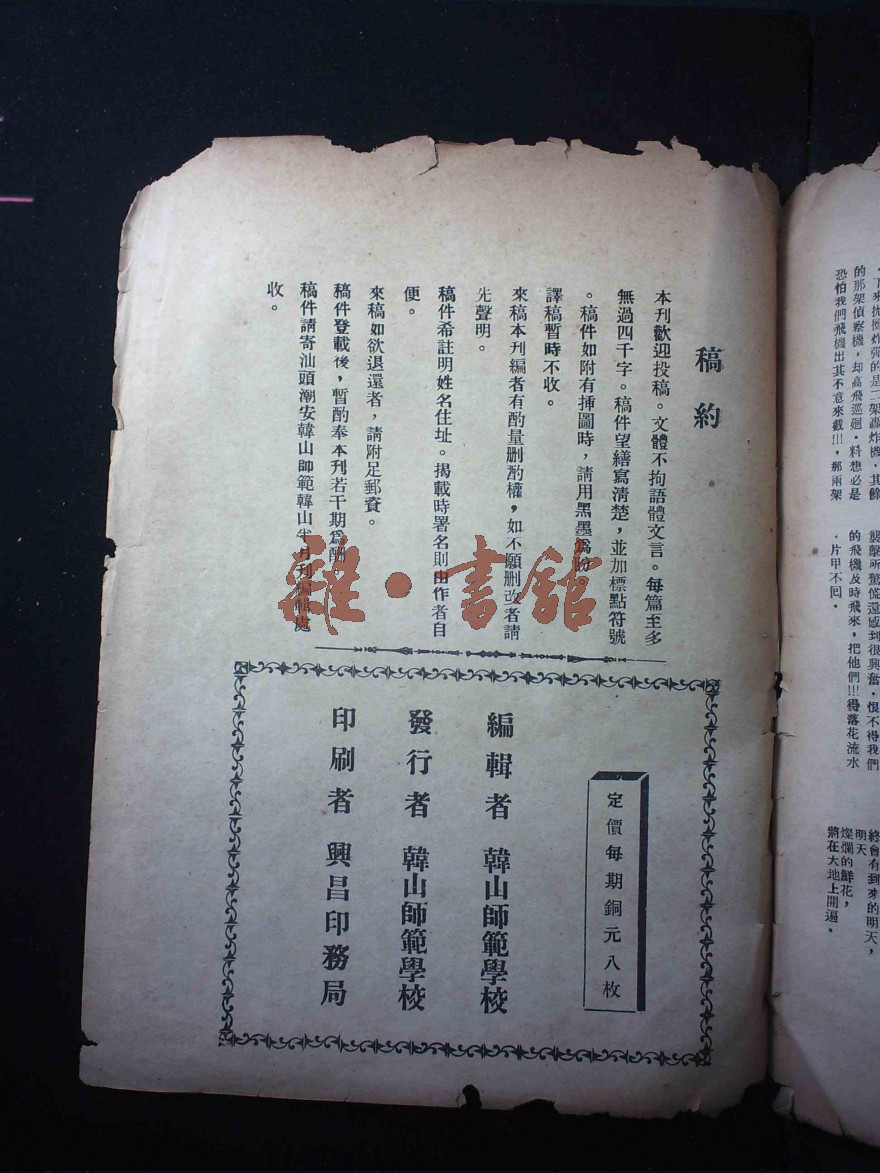 下來拋擲炸彈的是二架轟炸機,其餘
的那架偵察機,却高飛巡廻。料想必是
恐怕我們飛機出其不意來截!!!,那兩架
襲擊所驚慌還感到很興奮。恨不得我們
的飛機及時飛來,把他們!!!得落花流水
,片甲不囘。
終會有到來的明天,
明天
燦爛的鮮花,
將在大地上開遍。
稿約
本刊歡迎投稿。文體不拘語體文言。每篇至多
無過四千字。稿件望繕寫清楚,並加標點符號
。稿件如附有揷圖時,請用黑墨爲
譯稿暫時不收。
來稿本刊編者有酌量删酌權,如不願删改者請
先聲明。
稿件希註明姓名住址。揭載時署名則由作者自
便。
來稿如欲退還者,請附足郵資。
稿件登載後,暫酌奉本刊若干期爲酬
稿件請寄汕頭潮安韓山師範韓山半月刊編輯處
收。
雜·書館
定價每期銅元八枚
編輯者 韓山師範學校
發行者 韓山師範學校
印刷者 興昌印務局